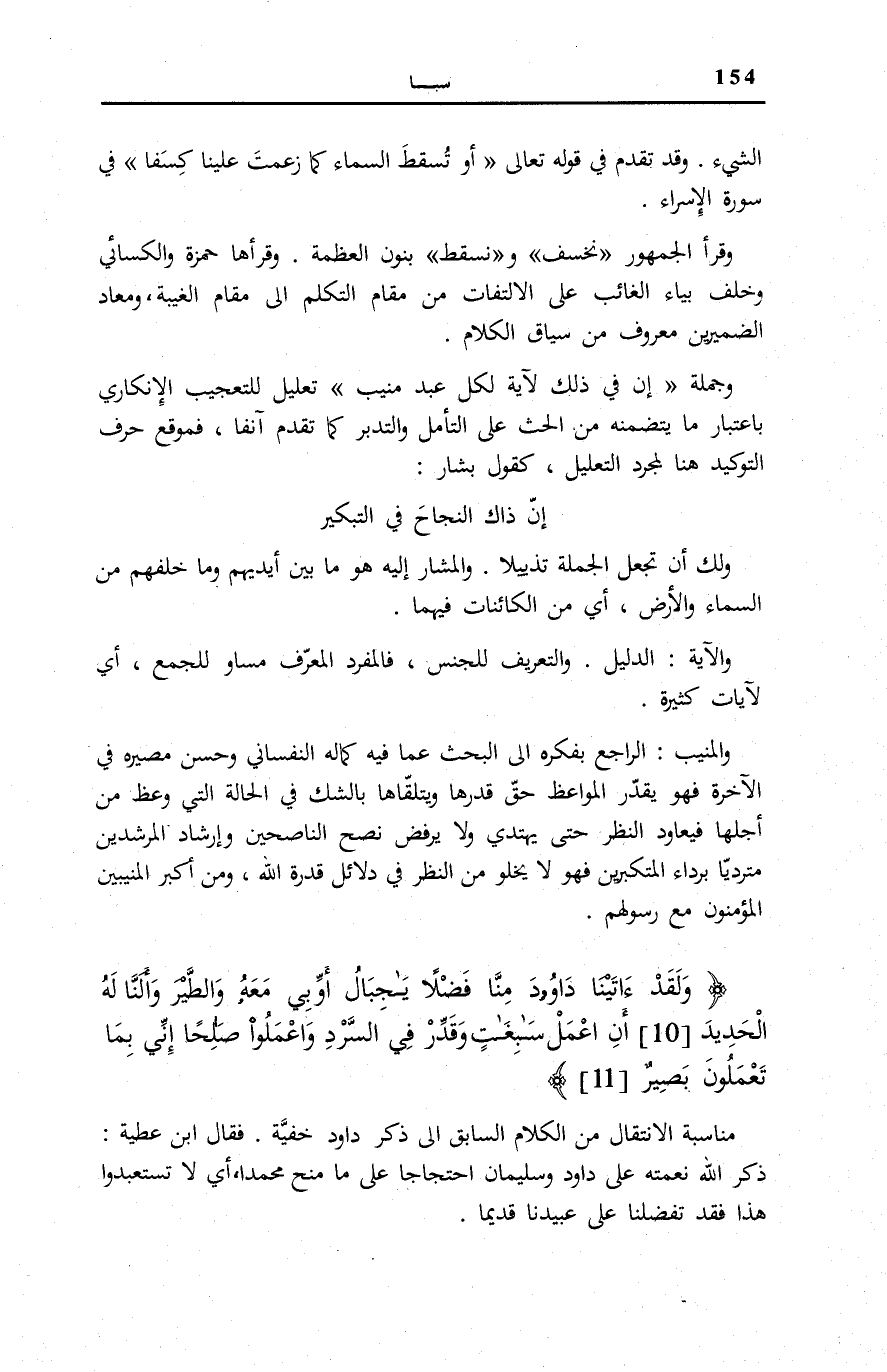 154
سبـــا
الشيء . وقد تقدم في قوله تعالى « أو تُسقطَ السماء كما زعمتَ علينا كِسَفا » في
سورة الإسراء .
وقرأ الجمهور «نخسف» و«نسقط» بنون العظمة . وقرأها حمزة والكسائي
وخلف بياء الغائب على الالتفات من مقام التكلم الى مقام الغيبة،ومعاد
الضميرين معروف من سياق الكلام .
وجملة « إن في ذلك لآية لكل عبد منيب » تعليل للتعجيب الإنكاري
باعتبار ما يتضمنه من الحث على التأمل والتدبر كما تقدم آنفا ، فموقع حرف
التوكيد هنا لمجرد التعليل ، كقول بشار :
إنّ ذاك النجاحَ في التبكير
ولك أن تجعل الجملة تذييلا . والمشار إليه هو ما بين أيديهم وما خلفهم من
السماء والأرض ، أي من الكائنات فيهما .
والآية : الدليل . والتعريف للجنس ، فالمفرد المعرّف مساو للجمع ، أي
لآيات كثيرة .
والمنيب : الراجع بفكره الى البحث عما فيه كماله النفساني وحسن مصيره في
الآخرة فهو يقدّر المواعظ حقّ قدرها ويتلقّاها بالشك في الحالة التي وعظ من
أجلها فيعاود النظر حتى يهتدي ولا يرفض نصح الناصحين وإرشاد المرشدين
مترديّا برداء المتكبرين فهو لا يخلو من النظر في دلائل قدرة الله ، ومن أكبر المنيبين
المؤمنون مع رسولهم .
﴿ وَلَقَدْ ءَاتَيْنَا دَاوُۥدَ مِنَّا فَضْلًا يَـٰجِبَالُ أَوِّبِي مَعَهُۥ وَالطَّيْرَ وَأَلَنَّا لَهُ
الْحَدِيدَ [10] أَنِ اعْمَلْ سَـٰبِغَـٰتٍ وَقَدِّرْ فِي السَّرْدِ وَاعْمَلُواْ صَـٰلِحًا إِنِّي بِمَا
تَعْمَلُونَ بَصِيرٌ [11] ﴾
مناسبة الانتقال من الكلام السابق الى ذكر داود خفيَّة . فقال ابن عطية :
ذكر الله نعمته على داود وسليمان احتجاجا على ما منح محمدا،أي لا تستعبدوا
هذا فقد تفضلنا على عبيدنا قديما .